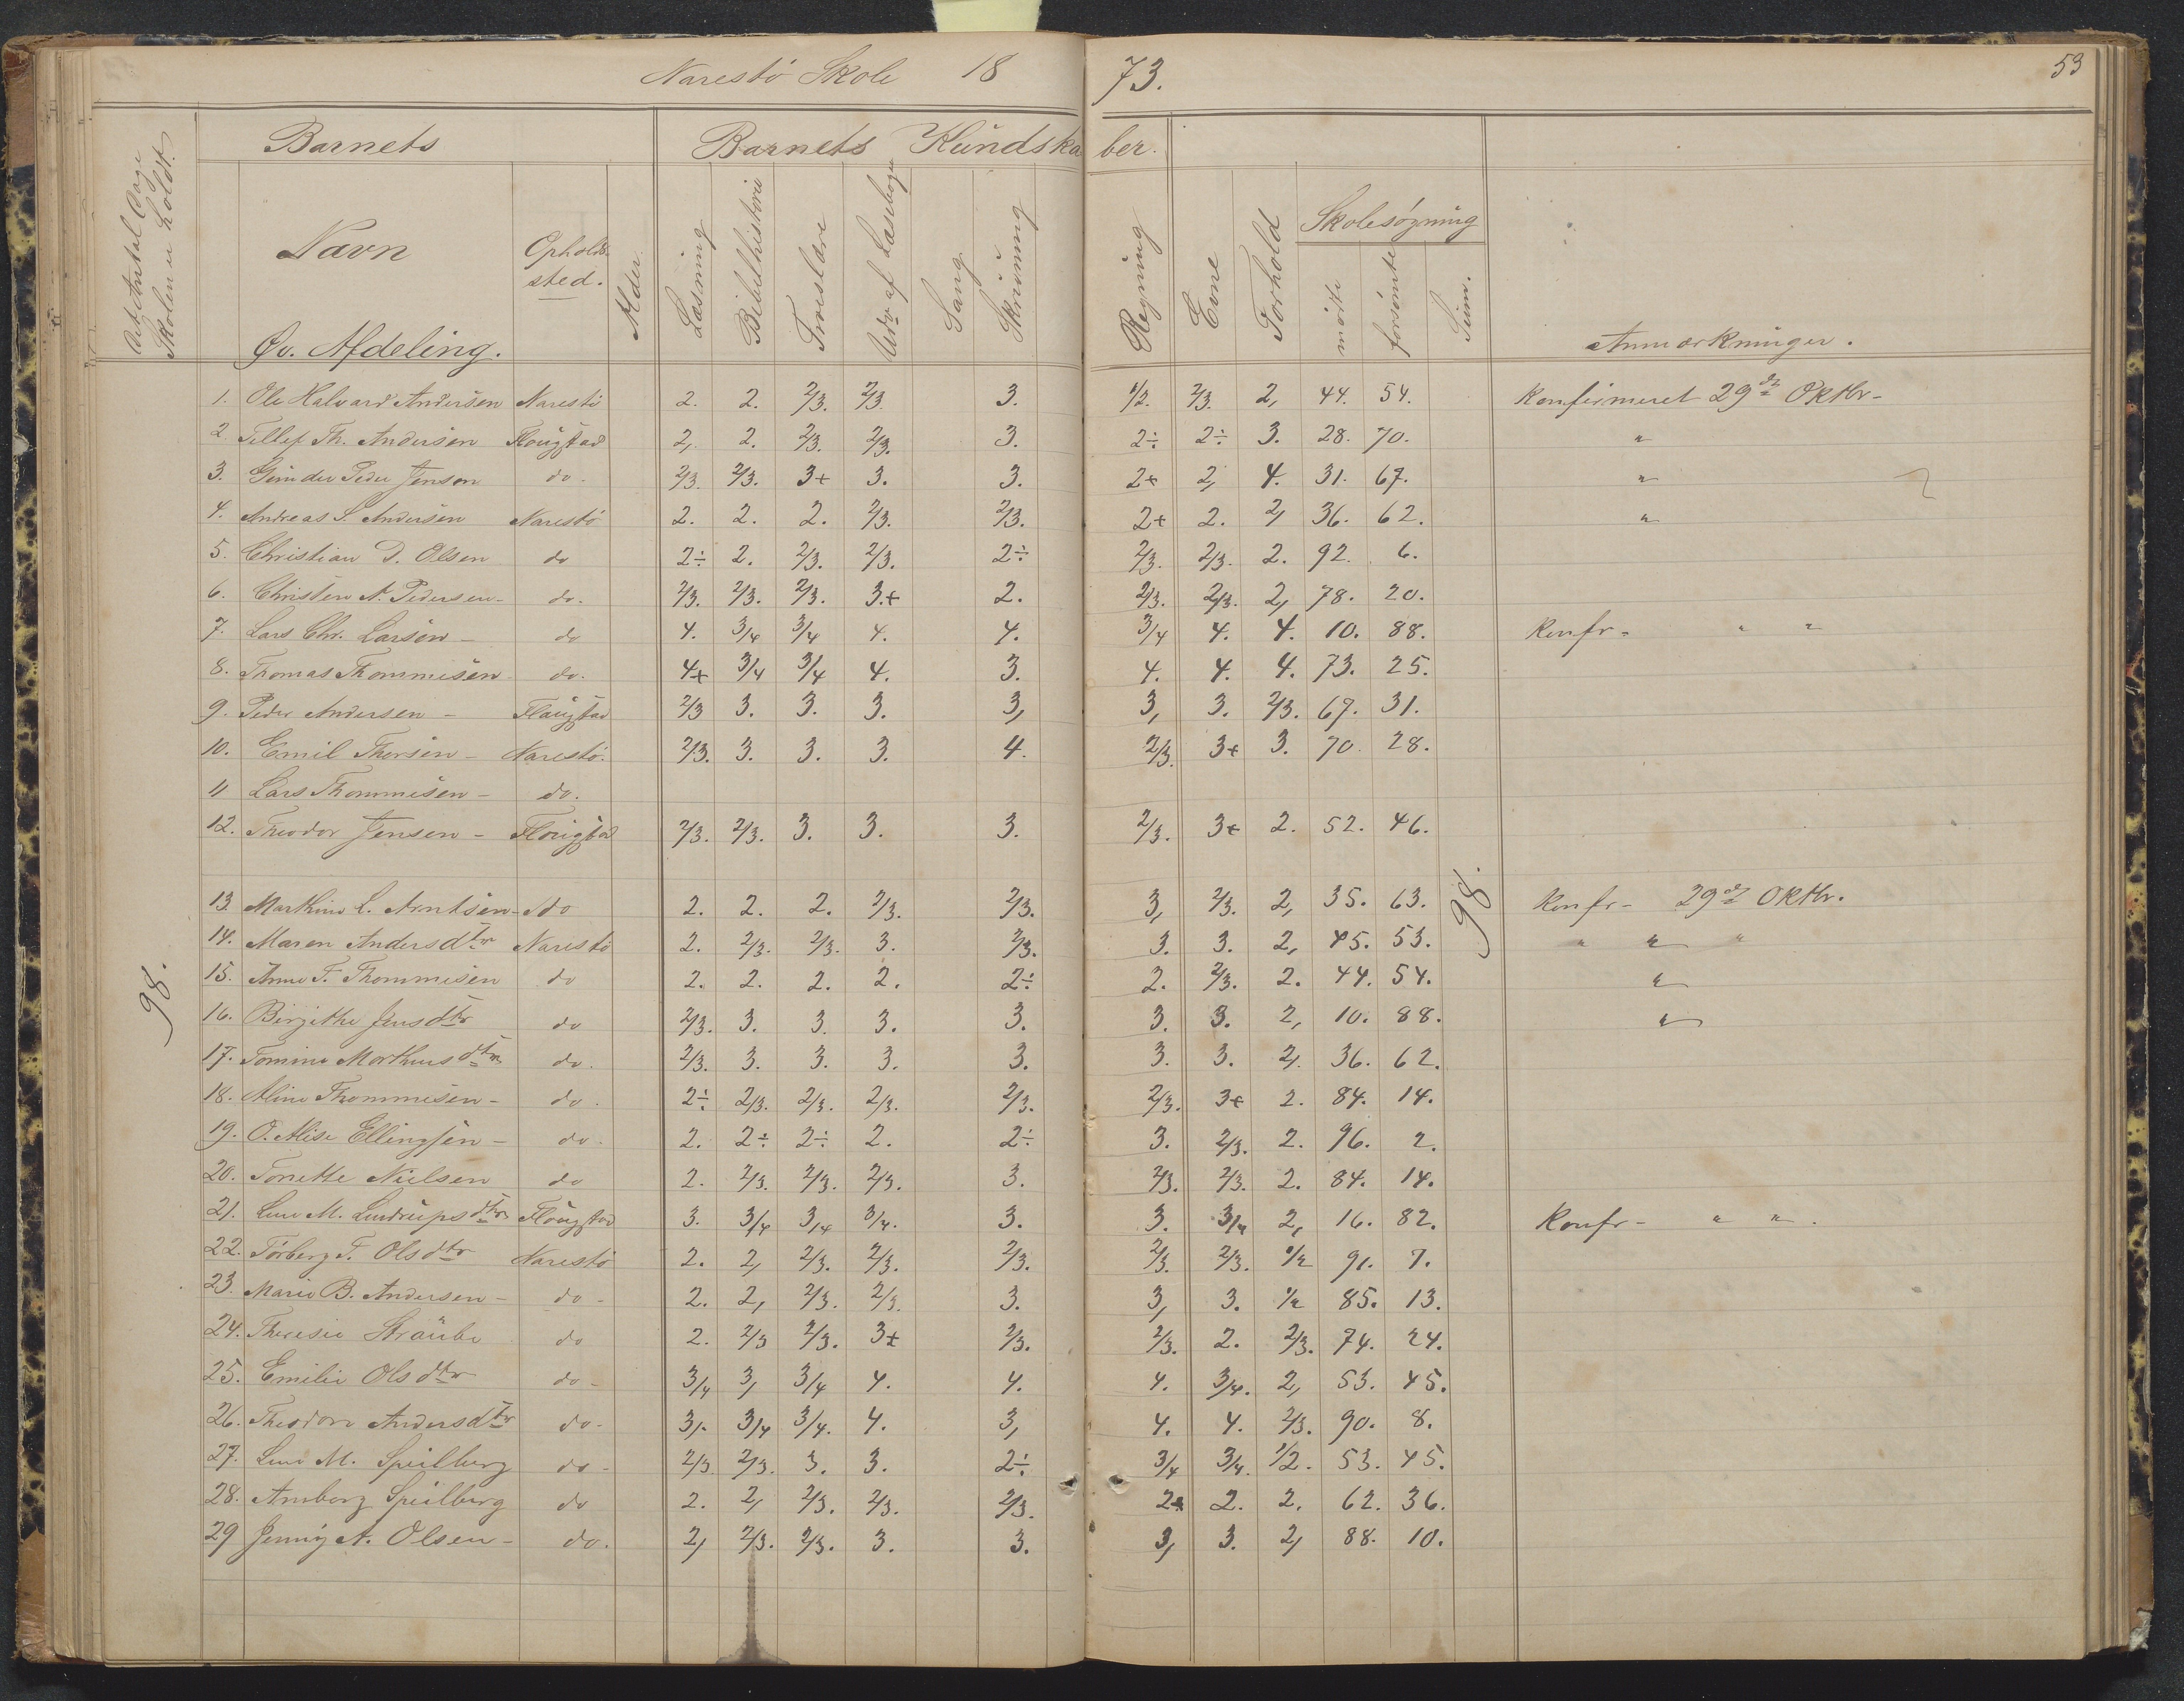 Narestö Skole 18 73. 53
Antal Dage Skolen er holdt.
Barnets Barnets Kundska ber.
Navn Opholds- sted. Alder. Læsning Bibelhistorie Troeslære Udv. af Læsebogen Sang Skrivning Regning Evne Forhold Skolesøgning mødte forsømte Sum. Anmærkninger.
Øv. Afdeling.
1. Ole Halvard Andersen Narestö 2. 2. 2/3. 2/3. 3. 1/2. 2/3. 2, 44. 54. Konfirmeret 29de Oktbr-
2. Tellef Th. Andersen Flougstad 2, 2. 2/3. 2/3. 3. 2÷ 2÷ 3. 28. 70. "
3. Peder Jenson do. 2/3 2/3. 3+ 3. 3. 2+ 2, 4. 31. 67. "
4. Andreas S. Andersen Narestö 2. 2. 2. 2/3. 2/3. 2+ 2. 2, 36. 62. "
5. Christian D. Olsen do 2÷ 2. 2/3. 2/3. 2÷ 2/3. 2/3. 2. 92. 6.
6. Christen N. Pedersen- do. 2/3. 2/3. 2/3. 3.+ 2. 2/3. 2/3. 2, 78. 20.
7. Lars Chr. Larsen - do 4. 3/4 3/4 4. 4. 3/4 4. 4. 10. 88. Konfr- " "
8. Thomas Thommesen do. 4+ 3/4 3/4 4. 3. 4. 4. 4. 73. 25.
9. Peder Andersen - Flougstad 2/3 3. 3. 3. 3, 3, 3. 2/3. 67. 31.
10. Emil Thorsen - Narestö. 2/3. 3. 3. 3. 4. 2/3. 3+ 3. 70. 28.
11 Lars Thommesen - do.
12. Theodor Jensen - Flougstad 2/3. 2/3. 3. 3. 3. 2/3. 3+ 2. 52. 46.
98. 98.
13. Marthine L. Arntsen- do 2. 2. 2. 2/3. 2/3. 3, 2/3. 2, 35. 63. Konfr- 29de Oktbr.
14. Maren Andersdtr Narestö 2. 2/3. 2/3. 3. 2/3. 3. 3. 2, 45. 53. " " "
15. Anne F. Thommesen do 2. 2. 2. 2. 2÷ 2. 2/3. 2. 44. 54. "
16. Birgithe Jensdtr do 2/3. 3. 3. 3. 3. 3. 3. 2, 10. 88. "
17. Tomine Morthensdtr do. 2/3. 3. 3. 3. 3. 3. 3. 2, 36. 62.
18. Aline Thommesen - do. 2÷ 2/3. 2/3. 2/3. 2/3. 2/3. 3+ 2. 84. 14.
19. O. Alise Ellingsen - do. 2. 2÷ 2÷ 2. 2÷ 3. 2/3. 2. 96. 2.
20. Tonette Nielsen do 2. 2/3. 2/3. 2/3. 3. 2/3. 2/3. 2. 84. 14.
21. Lene M. Lindrupsdtr Flougstad 3. 3/4 3/4 3/4. 3. 3. 3/4 2, 16. 82. Konfr- " ".
22. Torberg F. Olsdtr Narestö 2. 2, 2/3. 2/3. 2/3. 2/3. 2/3. 1/2 91. 7.
23. Marie B. Andersen - do - 2. 2, 2/3. 2/3. 3. 3, 3. 1/2 85. 13.
24. Theresie Straube do 2. 2/3 2/3. 3+ 2/3. 2/3. 2. 2/3. 74. 24.
25. Emilie Olsdtr do - 3/4 3, 3/4 4. 4. 4. 3/4. 2, 53. 45.
26. Theodora Andersdtr do- 3/- 3/4 3/4. 4. 3, 4. 4. 2/3. 90. 8.
27. Lene M. Speilberg do - 2/3 2/3. 3. 3. 2÷ 3/4 3/4. 1/2. 53. 45.
28. Anborg Speilberg do 2. 2, 2/3. 2/3. 2/3. 2+ 2. 2. 62. 36.
29 Jenny A. Olsen - do. 2, 2/3. 2/3. 3. 3. 3, 3. 2, 88. 10.